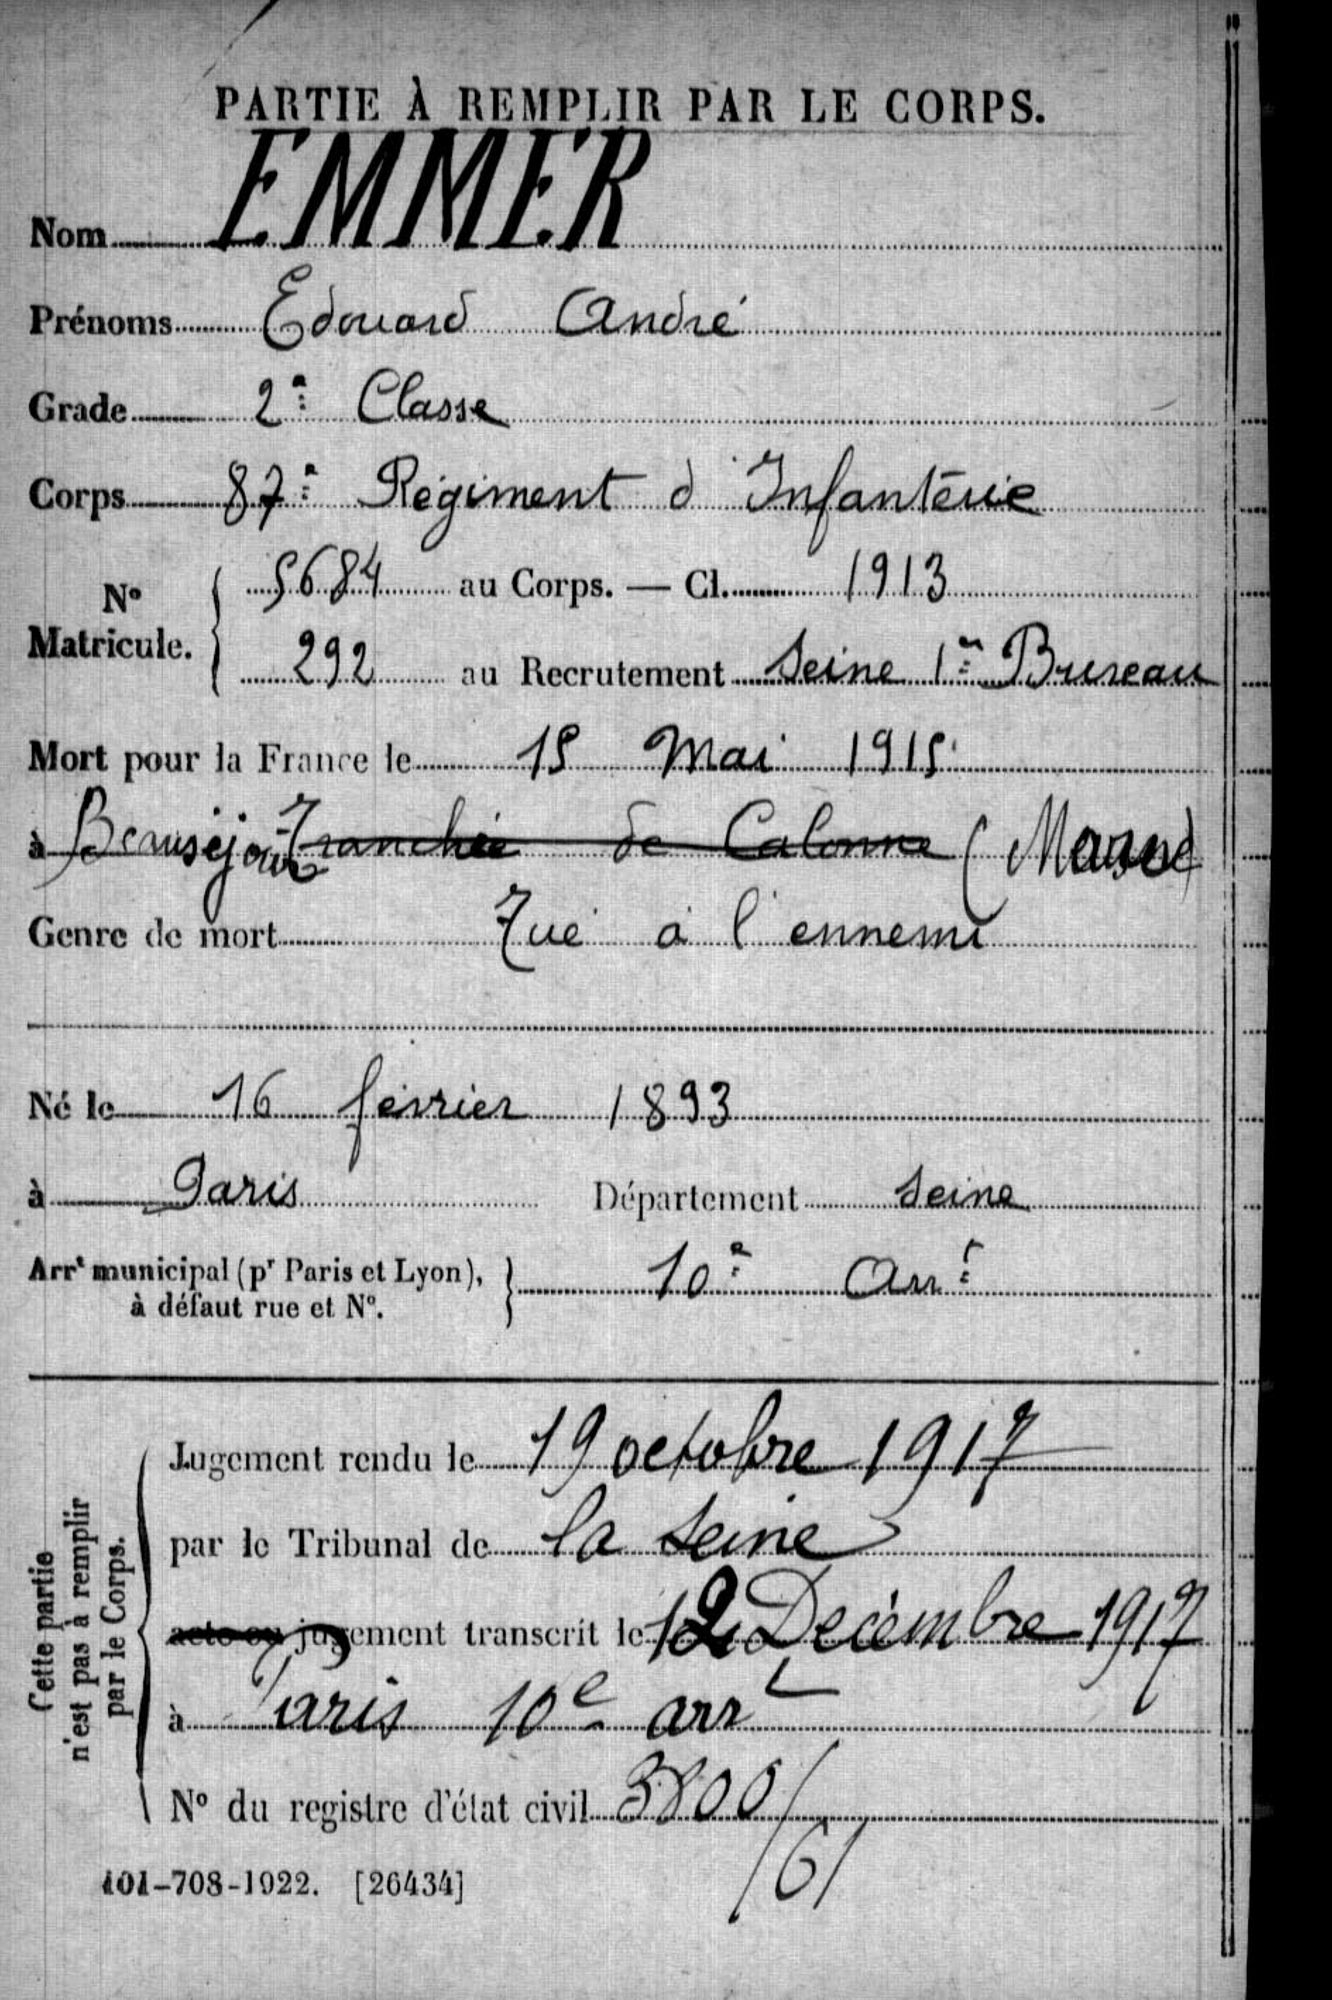 PARTIE À REMPLIR PAR LE CORPS.
Nom EMMER
Prénoms Edouard André
Grade 2e Classe
Corps 87e Régiment d'Infanterie
N° Matricule. { 5684 au Corps. — Cl. 1913
292 au Recrutement Seine 1er Bureau
Mort pour la France le 15 Mai 1915
à Beauséjour Tranchée de Calonne (Marne)
Genre de mort Tué à l'ennemi
Né le 16 février 1893
à Paris Département Seine
Arrt municipal (pr Paris et Lyon), à défaut rue et N°. } 10e Arrt
Cette partie n'est pas à remplir par le Corps.
Jugement rendu le 19 octobre 1917
par le Tribunal de la Seine
acte ou jugement transcrit le 12 Decémbre 1917
à Paris 10e arrt
N° du registre d'état civil 3800/
/61
101-708-1922. [26434]